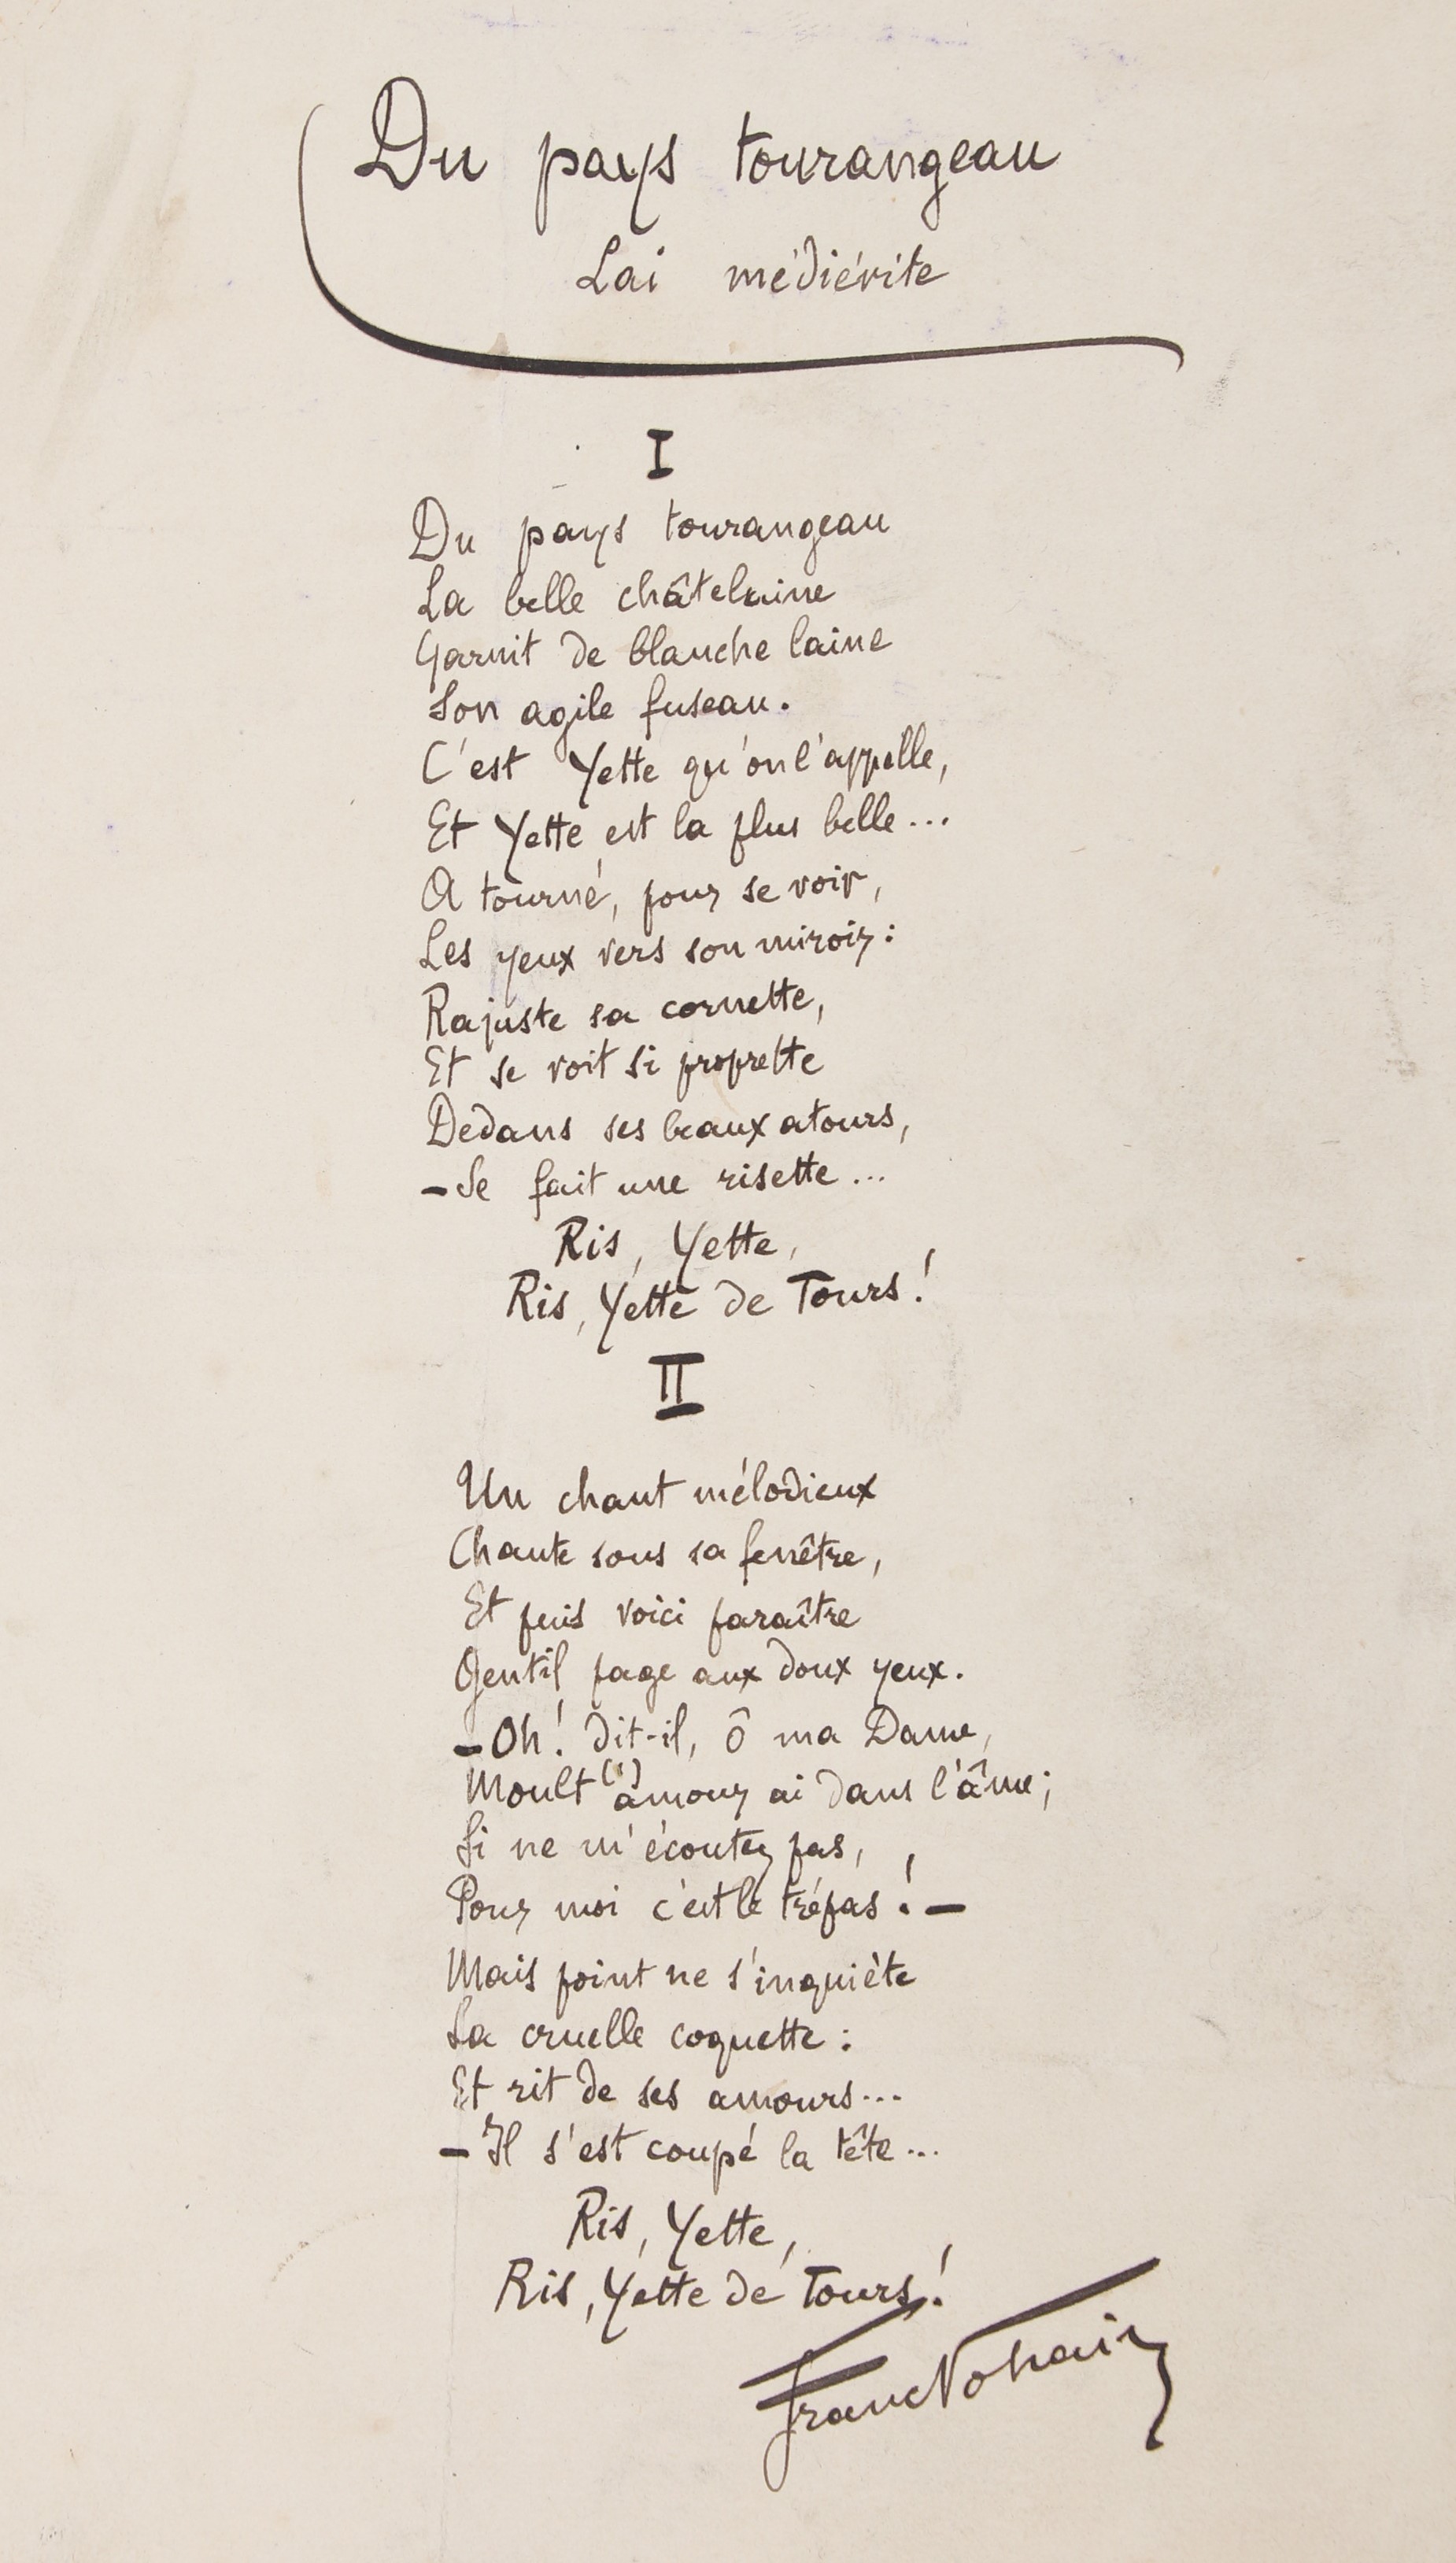 Du pays tourangeau
Lai médiévite
I
Du pays tourangeau
La belle châtelaine
Garnit de blanche laine
Son agile fuseau.
C'est Yette qu'on l'appelle,
Et Yette est la plus belle...
A tourné, pour se voir,
Les yeux vers son miroir:
Rajuste sa cornette,
Et se voit si proprette
Dedans ses beaux atours,
— Se fait une risette...
Ris, Yette,
Ris, Yette de Tours!
II
Un chant mélodieux
Chante sous sa fenêtre,
Et puis voici paraître
Gentil page aux doux yeux.
— Oh! dit-il, ô ma Dame,
Moult (1) amour ai dans l'âme;
Si ne m'écoutez pas,
Pour moi c'est le trépas! —
Mais point ne s'inquiète
La cruelle coquette:
Et rit de ses amours...
— Il s'est coupé la tête...
Ris, Yette,
Ris, Yette de Tours!
Franc Nohain